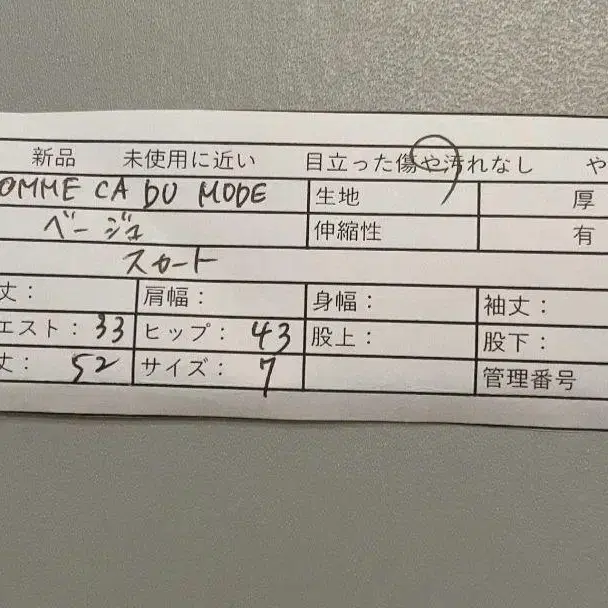 新品 未使用に近い 目立った傷や汚れなし や
OMME CA DU MODE 生地 厚
ベージュ 伸縮性 有
スカート
丈： 肩幅： 身幅： 袖丈：
エスト：33 ヒップ：43 股上： 股下：
丈：52 サイズ：7 管理番号